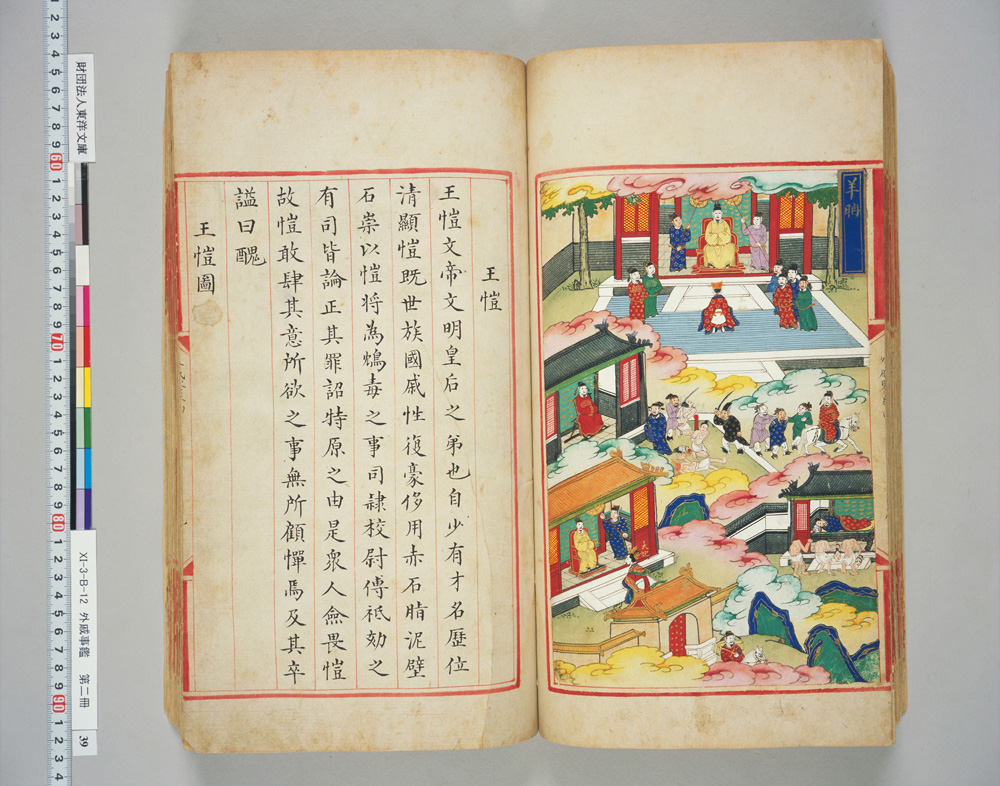 羊聃
王愷
王愷文帝文明皇后之弟也自少有才名歷位
清顯愷既世族國戚性復豪侈用赤石脂泥壁
石崇以愷將為鴆毒之事司隷校尉傅祗劾之
有司皆論正其罪詔特原之由是衆人僉畏愷
故愷敢肆其意所欲之事無所顧憚焉及其卒
謚曰醜
王愷圖
財団法人東洋文庫
XI-3-B-12 外戚事鑑 第二冊 39